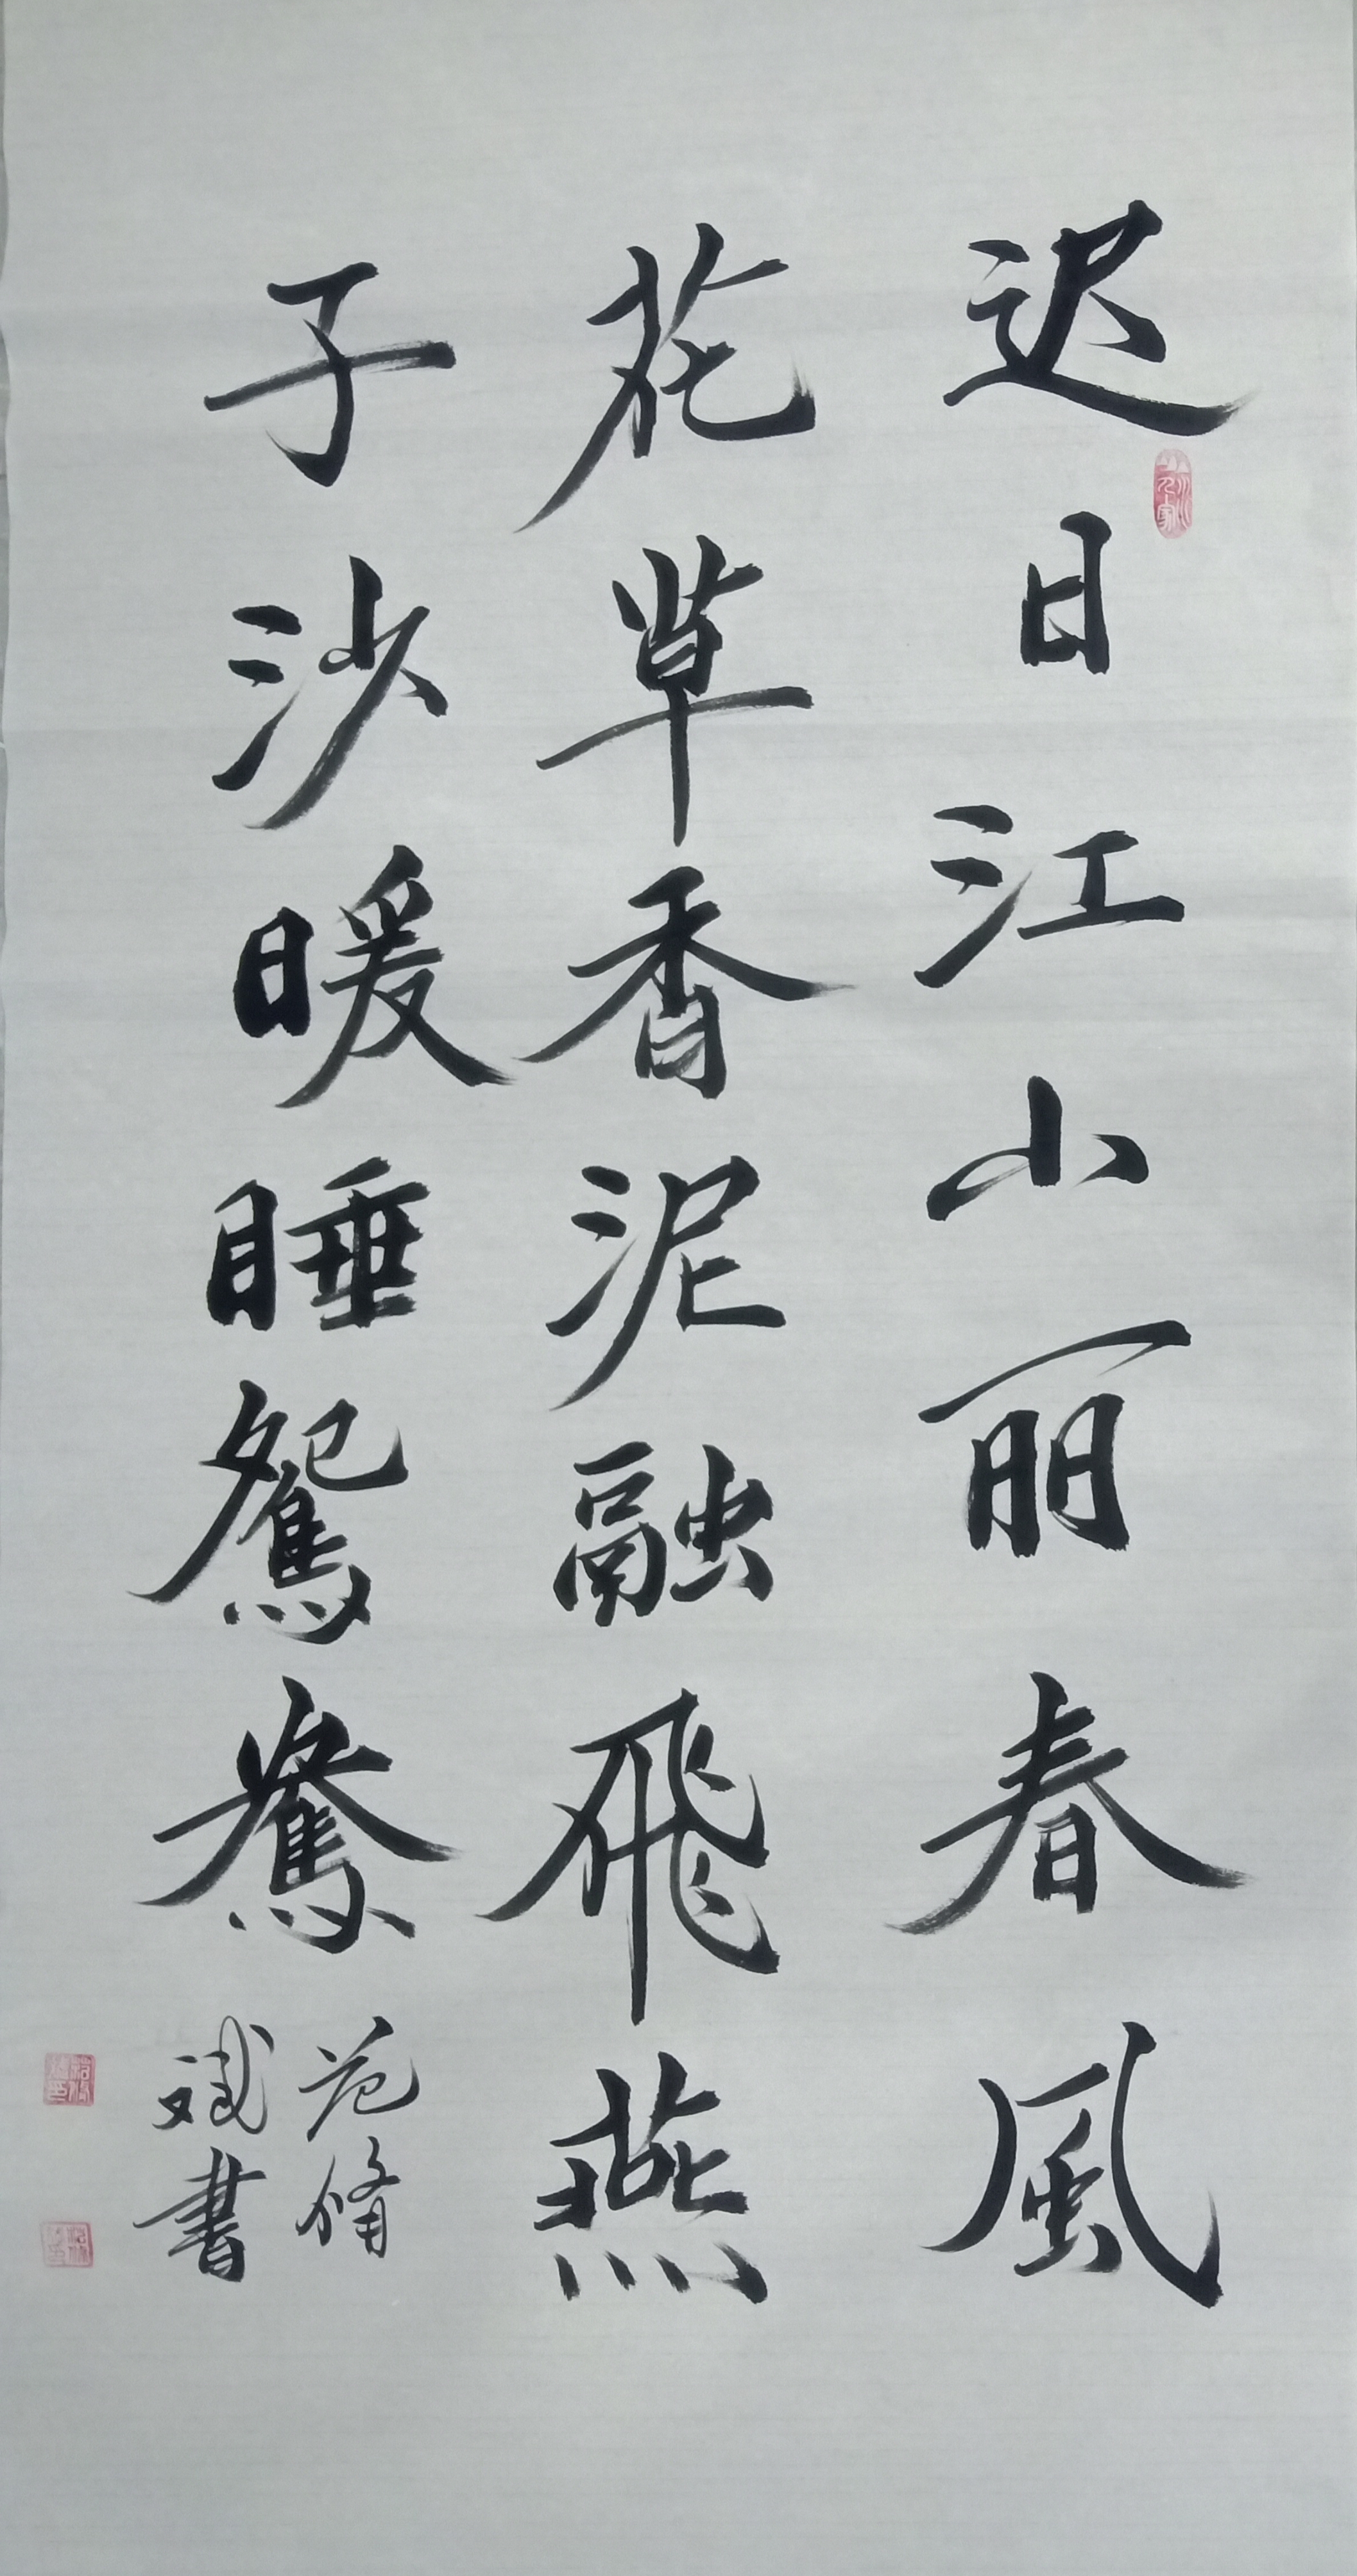 迟日江山丽春風
花草香泥融飛燕
子沙暖睡鴛鴦
范脩
斌書